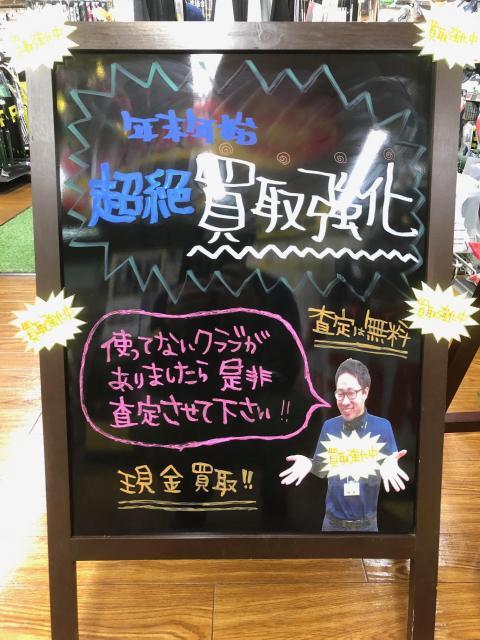 買取強化中
買取強化中
年末年始
超絶買取強化
買取強化中
査定は無料
買取強化中
使ってないクラブが
ありましたら是非
査定させて下さい!!
買取強化中
現金買取!!